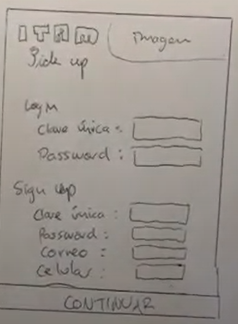 ITAM
Imagen
Pick up
Log in
Clave única :
Password :
Sign up
Clave única :
Password :
Correo :
Celular :
CONTINUAR